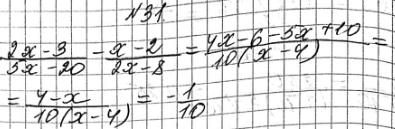 №31
(2x-3)/(5x-20) - (x-2)/(2x-8) = (4x-6-5x+10)/(10(x-4)) =
= (4-x)/(10(x-4)) = -1/10